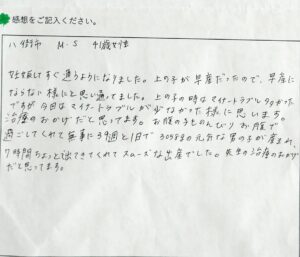 感想をご記入ください。
八街市 M・S 41歳女性
妊娠してすぐ通うようになりました。上の子が早産だったので、早産に
ならない様にと思い通ってました。上の子の時はマイナートラブル多かった
ですが今回はマイナートラブルが少なかった様に思います。
治療のおかげだと思ってます。お腹の子ものんびりお腹で
過ごしてくれて無事に39週と1日で3058gの元気な男の子が産まれ、
7時間ちょっと出てきてくれてスムーズな出産でした。先生の治療のおかげ
だと思ってます。